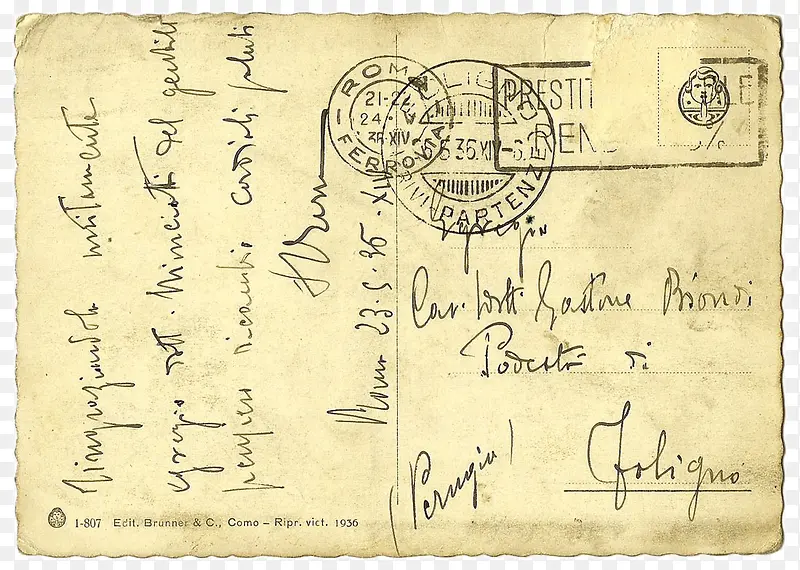 Ringraziandola unitamente
Egregio dott. Minciotti del gentile
pensiero ricambio cordiali saluti
Roma 23.5.36.XIV
ROMA
21-22
24.
36.XIV
FERROVIA
36.XIV-6.
ARRIVI PARTENZE
PRESTIT
LE
REN
Egregio
Cav. Dott. Gastone Biondi
Podestà di
Foligno
(Perugia)
1-807 Edit. Brunner & C., Como – Ripr. viet. 1936